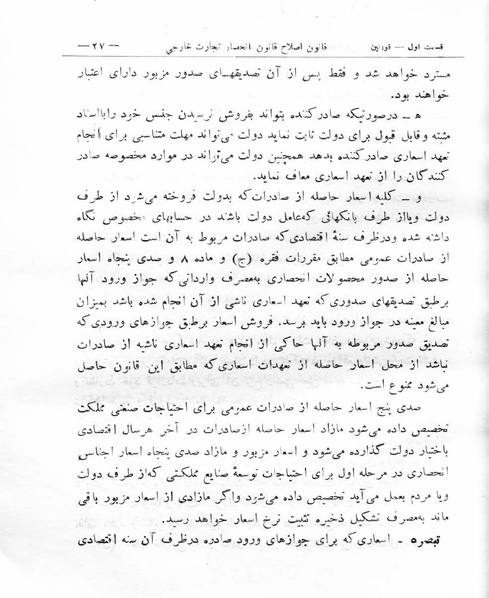 قسمت اول — قوانین قانون اصلاح قانون انحصار تجارت خارجی — ۲۷ —
مسترد خواهد شد و فقط پس از آن تصدیقهای صدور مزبور دارای اعتبار
خواهند بود.
ه‍ ـ درصورتیکه صادرکننده بتواند بفروش نرسیدن جنس خود رابااسناد
مثبته وقابل قبول برای دولت ثابت نماید دولت می‌تواند مهلت متناسبی برای انجام
تعهد اسعاری صادرکننده بدهد همچنین دولت می‌تواند در موارد مخصوصه صادر
کنندگان را از تعهد اسعاری معاف نماید.
و ـ کلیه اسعار حاصله از صادرات‌که بدولت فروخته می‌شود از طرف
دولت ویااز طرف بانکهائی که‌عامل دولت باشند در حسابهای مخصوص نگاه
داشته شده ودرظرف سنهٔ اقتصادی‌که صادرات مربوط به آن است اسعار حاصله
از صادرات عمومی مطابق مقررات فقره (ج) و ماده ۸ و صدی پنجاه اسعار
حاصله از صدور محصولات انحصاری به‌مصرف وارداتی‌که جواز ورود آنها
برطبق تصدیقهای صدوری‌که تعهد اسعاری ناشی از آن انجام شده باشد بمیزان
مبالغ معینه در جواز ورود باید برسد. فروش اسعار برطبق جوازهای ورودی‌که
تصدیق صدور مربوطه به آنها حاکی از انجام تعهد اسعاری ناشیه از صادرات
نباشد از محل اسعار حاصله از تعهدات اسعاری‌که مطابق این قانون حاصل
می‌شود ممنوع است.
صدی پنج اسعار حاصله از صادرات عمومی برای احتیاجات صنعتی مملکت
تخصیص داده می‌شود مازاد اسعار حاصله ازصادرات در آخر هرسال اقتصادی
باختیار دولت گذارده می‌شود و اسعار مزبور و مازاد صدی پنجاه اسعار اجناس
انحصاری در مرحله اول برای احتیاجات توسعهٔ صنایع مملکتی که‌از طرف دولت
ویا مردم بعمل می‌آید تخصیص داده می‌شود واگر مازادی از اسعار مزبور باقی
ماند به‌مصرف تشکیل ذخیره تثبیت نرخ اسعار خواهد رسید.
تبصره ـ اسعاری‌که برای جوازهای ورود صادره درظرف آن سنه اقتصادی